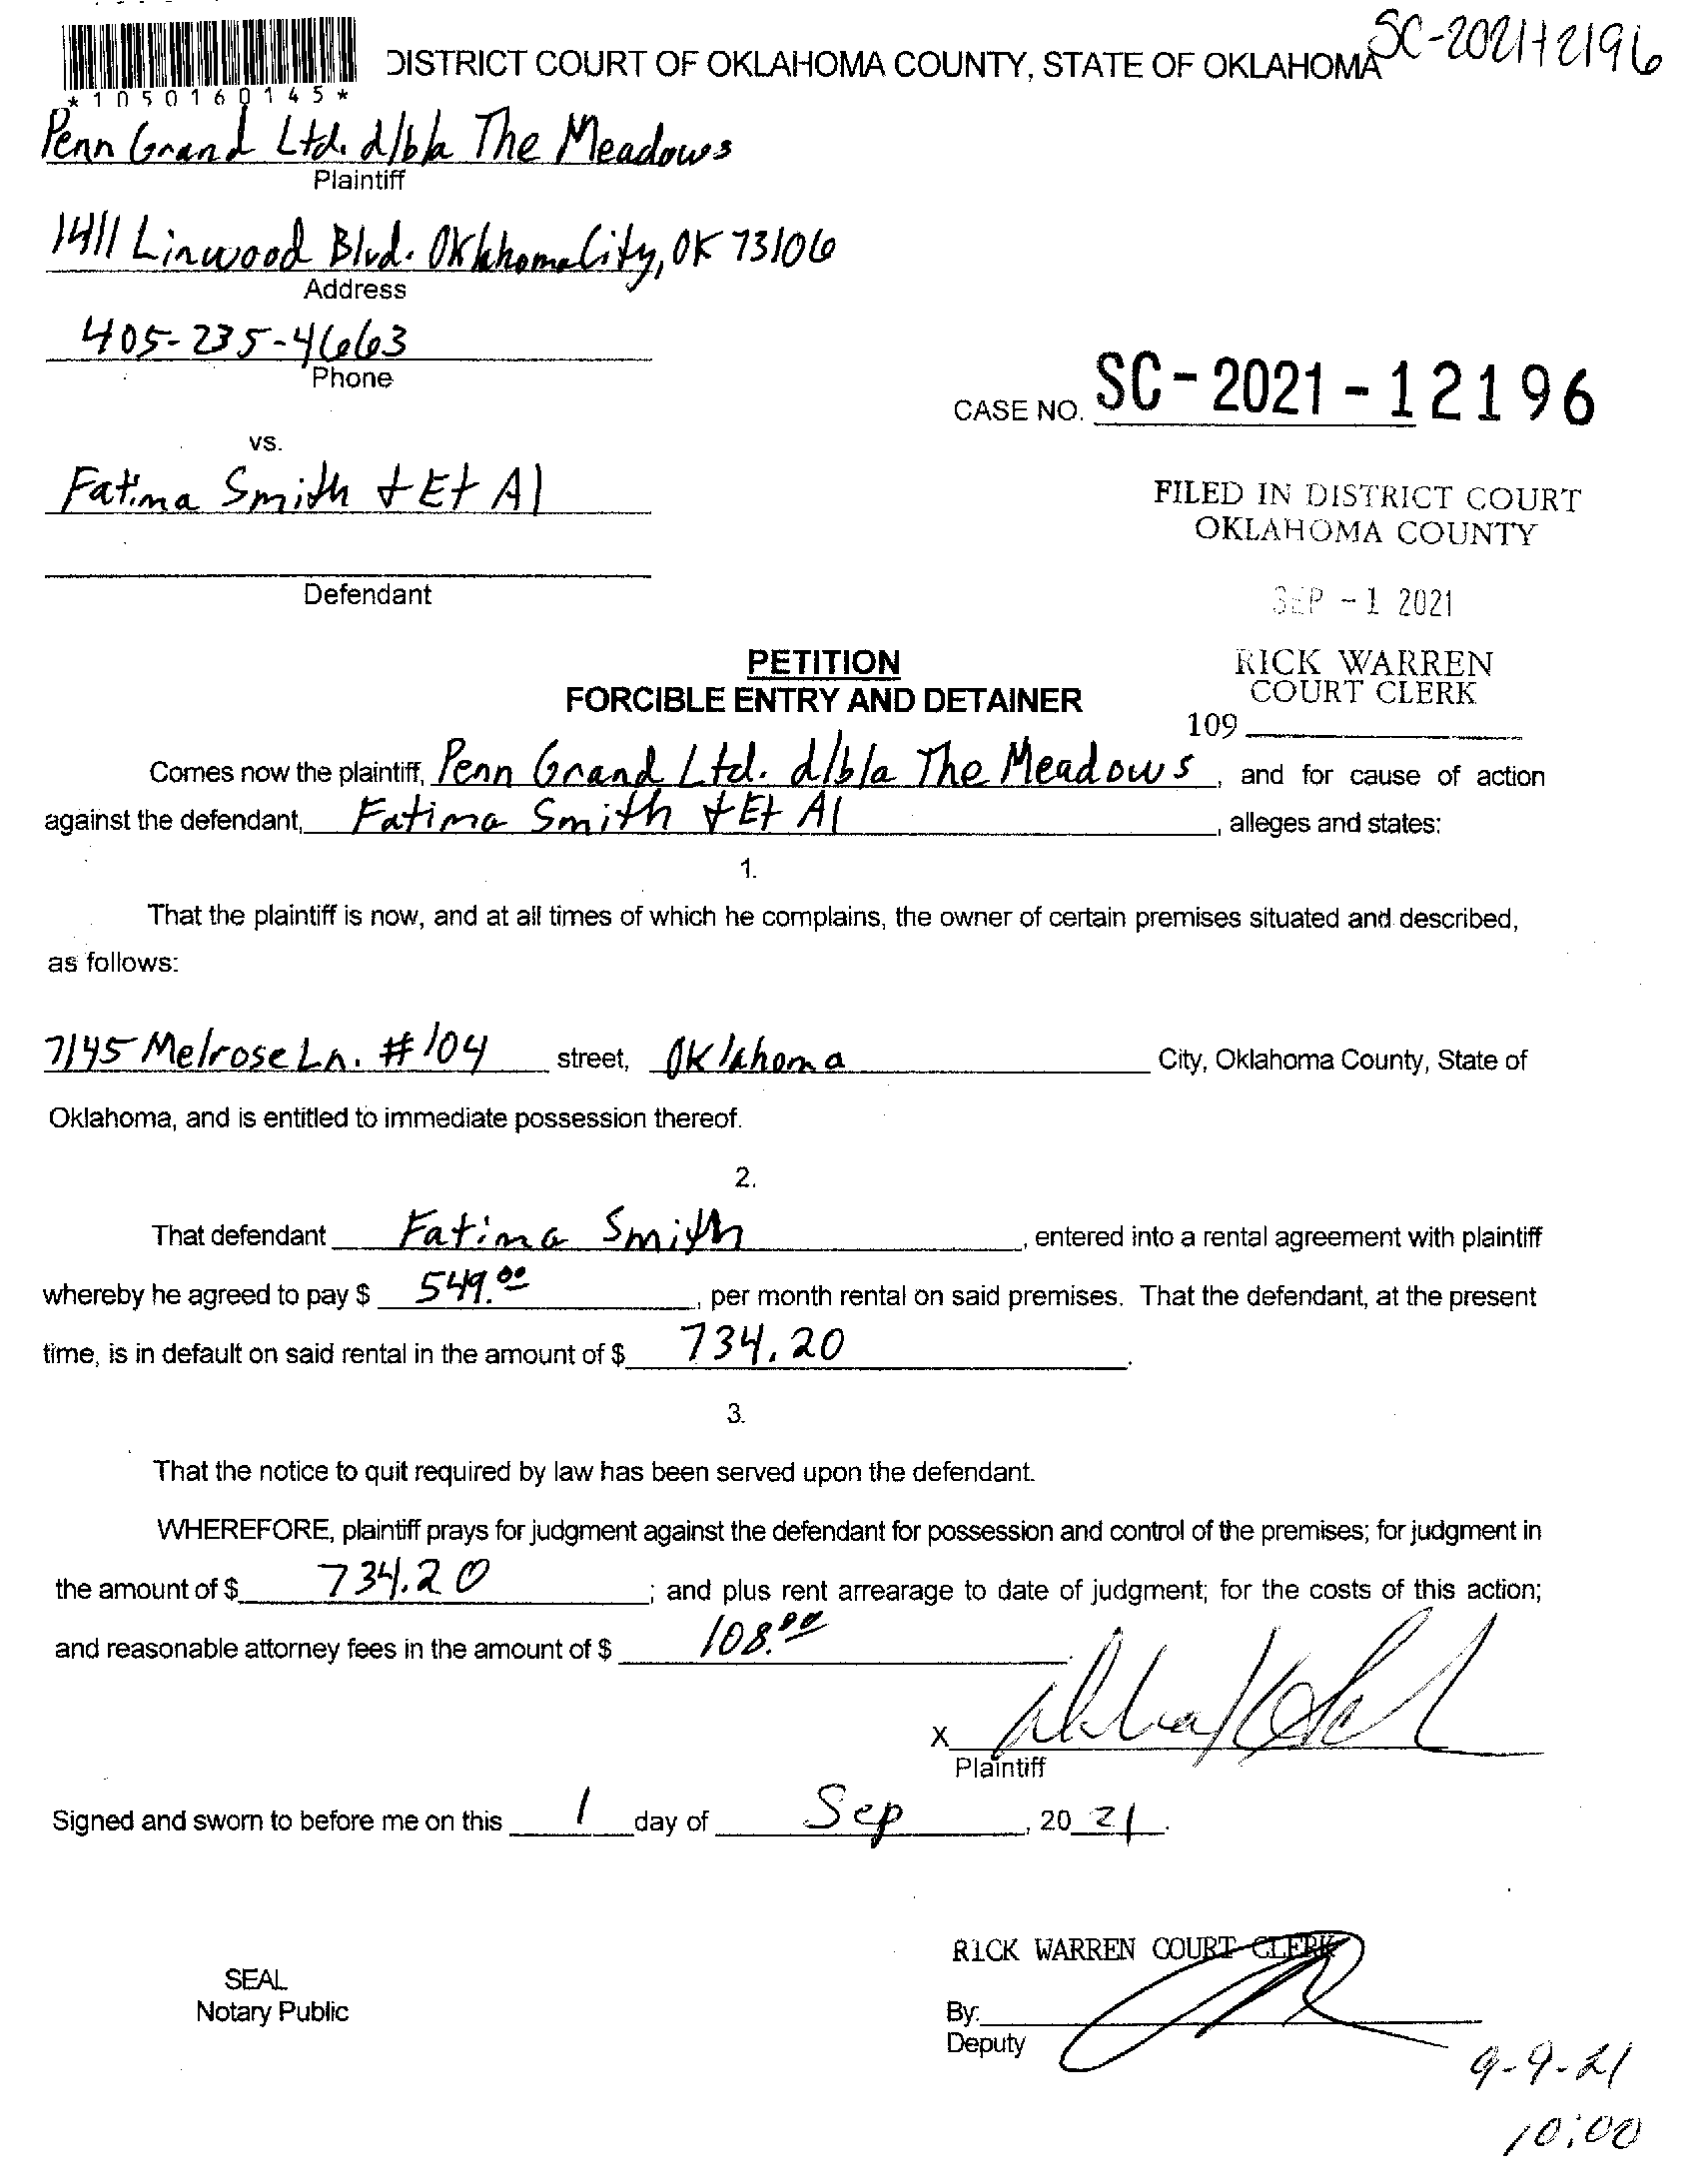 SC-2021-12196
DISTRICT COURT OF OKLAHOMA COUNTY, STATE OF OKLAHOMA
*1050160145*
Penn Grand Ltd. d/b/a The Meadows
Plaintiff
1411 Linwood Blvd. Oklahoma City, OK 73106
Address
405-235-4663
Phone
CASE NO. SC-2021-12196
vs.
Fatima Smith + Et Al
FILED IN DISTRICT COURT
OKLAHOMA COUNTY
Defendant
SEP -1 2021
PETITION
FORCIBLE ENTRY AND DETAINER
RICK WARREN
COURT CLERK
109
Comes now the plaintiff, Penn Grand Ltd. d/b/a The Meadows, and for cause of action
against the defendant, Fatima Smith + Et Al, alleges and states:
1.
That the plaintiff is now, and at all times of which he complains, the owner of certain premises situated and described,
as follows:
7145 Melrose Ln. #104 street, Oklahoma City, Oklahoma County, State of
Oklahoma, and is entitled to immediate possession thereof.
2.
That defendant Fatima Smith, entered into a rental agreement with plaintiff
whereby he agreed to pay $ 549.00, per month rental on said premises. That the defendant, at the present
time, is in default on said rental in the amount of $ 734.20.
3.
That the notice to quit required by law has been served upon the defendant.
WHEREFORE, plaintiff prays for judgment against the defendant for possession and control of the premises; for judgment in
the amount of $ 734.20; and plus rent arrearage to date of judgment; for the costs of this action;
and reasonable attorney fees in the amount of $ 108.00.
X
Plaintiff
Signed and sworn to before me on this 1 day of Sep, 20 21.
RICK WARREN COURT CLERK
SEAL
Notary Public
By:
Deputy
9-9-21
10:00